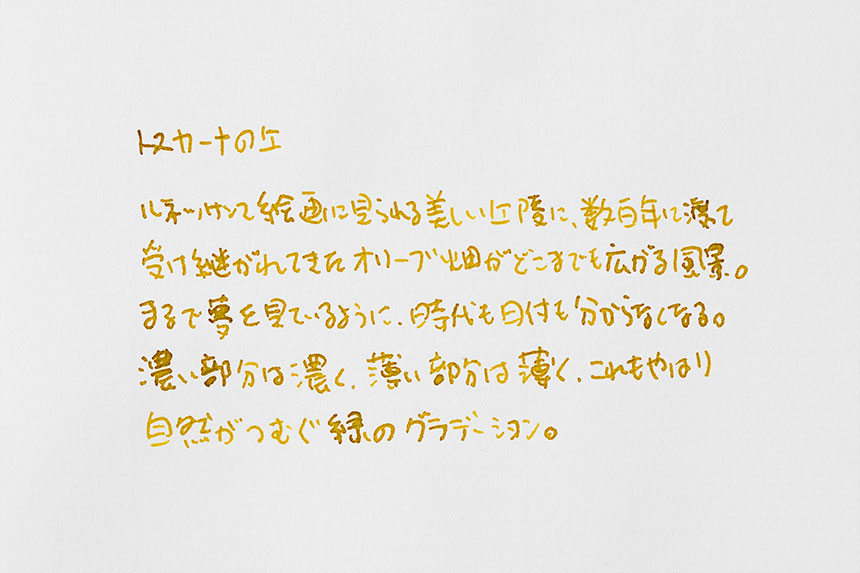 トスカーナの丘
ルネッサンス絵画に見られる美しい丘陵に、数百年に渡って
受け継がれてきたオリーブ畑がどこまでも広がる風景。
まるで夢を見ているように、時代も日付も分からなくなる。
濃い部分は濃く、薄い部分は薄く、これもやはり
自然がつむぐ緑のグラデーション。